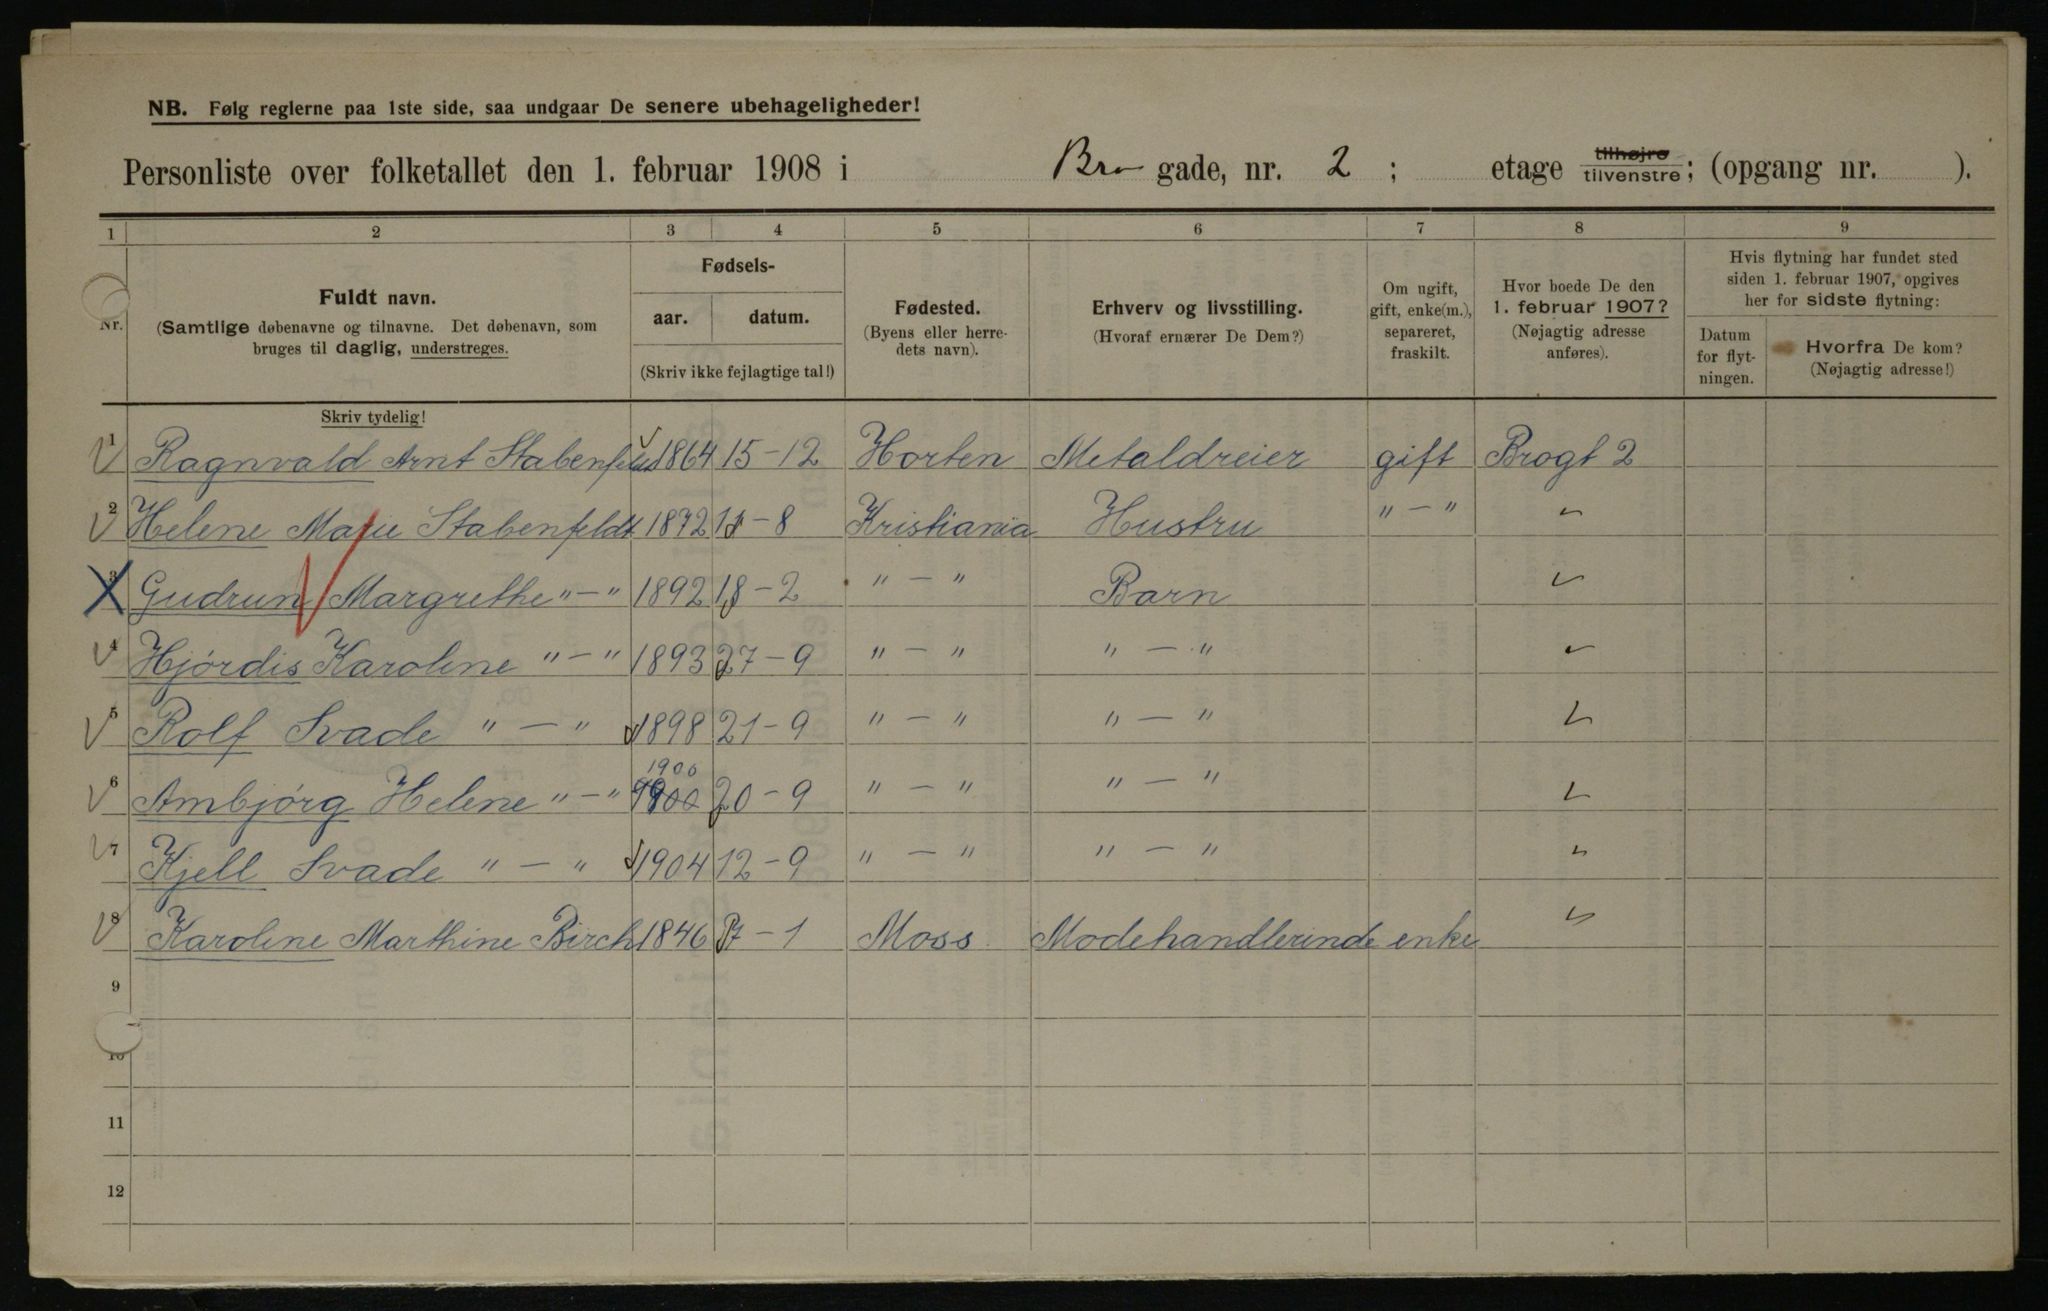 NB. Følg reglerne paa 1ste side, saa undgaar De senere ubehageligheder!
Personliste over folketallet den 1. februar 1908 i Bro gade, nr. 2 ; etage tilhøjre tilvenstre; (opgang nr. ).
1 2 3 4 5 6 7 8 9
Nr.
Fuldt navn.
(Samtlige døbenavne og tilnavne. Det døbenavn, som
bruges til daglig, understreges.
Skriv tydelig!
Fødsels-
aar. datum.
(Skriv ikke fejlagtige tal!)
Fødested.
(Byens eller herre-
dets navn).
Erhverv og livsstilling.
(Hvoraf ernærer De Dem?)
Om ugift,
gift, enke(m.),
separeret,
fraskilt.
Hvor boede De den
1. februar 1907?
(Nøjagtig adresse
anføres).
Hvis flytning har fundet sted
siden 1. februar 1907, opgives
her for sidste flytning:
Datum
for flyt-
ningen.
Hvorfra De kom?
(Nøjagtig adresse!)
1 Ragnvald Arnt Stabenfeldt 1864 15-12 Horten Metaldreier gift Brogt 2
2 Helene Marie Stabenfeldt 1872 11-8 Kristiania Hustru "-" "
3 Gudrun Margrethe "-" 1892 18-2 "-" Barn "
4 Hjórdis Karoline "-" 1893 27-9 "-" "-" "
5 Rolf Svade "-" 1898 21-9 "-" "-" "
6 Ambjórg Helene "-" 1900 1900 20-9 "-" "-" "
7 Kjell Svade "-" 1904 12-9 "-" "-" "
8 Karoline Marthine Birch 1846 -1 Moss Modehandlerinde enke "
9
10
11
12